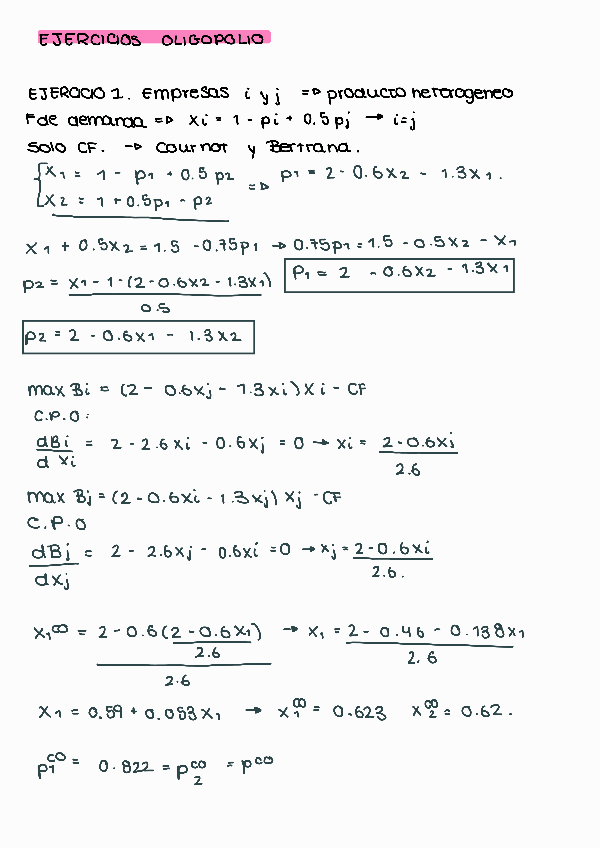 EJERCICIOS OLIGOPOLIO
EJERCICIO 1. Empresas i y j => producto heterogeneo
F de demanda => Xi = 1 - pi + 0.5pj → i=j
Solo CF. → Cournot y Bertrand.
{X1 = 1 - p1 + 0.5 p2 => p1 = 2 - 0.6X2 - 1.3X1.
X2 = 1 + 0.5p1 - p2
X1 + 0.5X2 = 1.5 - 0.75p1 → 0.75p1 = 1.5 - 0.5X2 - X1
p2 = X1 - 1 - (2 - 0.6X2 - 1.3X1) / 0.5
P1 = 2 - 0.6X2 - 1.3X1
p2 = 2 - 0.6X1 - 1.3X2
max Bi = (2 - 0.6xj - 1.3xi) Xi - CF
C.P.O:
dBi / dXi = 2 - 2.6Xi - 0.6Xj = 0 → Xi = 2 - 0.6Xj / 2.6
max Bj = (2 - 0.6xi - 1.3xj) Xj - CF
C.P.O
dBj / dXj = 2 - 2.6Xj - 0.6Xi = 0 → Xj = 2 - 0.6Xi / 2.6.
X1^CO = 2 - 0.6(2 - 0.6X1 / 2.6) / 2.6 → X1 = 2 - 0.46 - 0.138X1 / 2.6
X1 = 0.59 + 0.053X1 → X1^CO = 0.623 X2^CO = 0.62.
p1^CO = 0.822 = p2^CO = p^CO